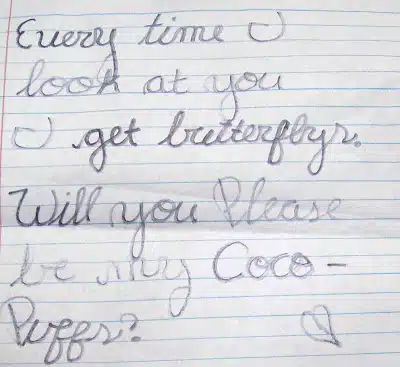 Every time I
look at you
I get butterflys.
Will you Please
be my Coco-
Puffs?